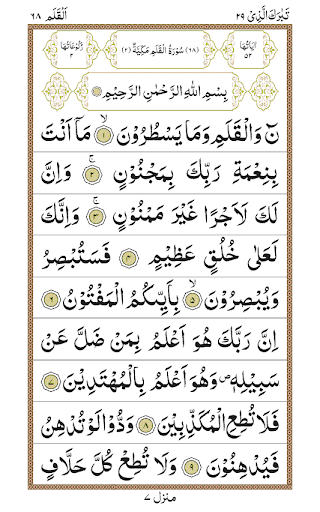 تَبٰرَكَ الَّذِیْ ۲۹
اَلْقَلَم ۶۸
اٰیَاتُهَا ۵۲
(۶۸) سُوْرَةُ الْقَلَمِ مَكِّیَّةٌ (۲)
رُكُوْعَاتُهَا ۲
بِسْمِ اللهِ الرَّحْمٰنِ الرَّحِیْمِ
نٓ وَالْقَلَمِ وَمَا یَسْطُرُوْنَ ۙ﴿۱﴾ مَاۤ اَنْتَ
بِنِعْمَةِ رَبِّكَ بِمَجْنُوْنٍ ۚ﴿۲﴾ وَاِنَّ
لَكَ لَاَجْرًا غَیْرَ مَمْنُوْنٍ ۚ﴿۳﴾ وَاِنَّكَ
لَعَلٰی خُلُقٍ عَظِیْمٍ ﴿۴﴾ فَسَتُبْصِرُ
وَیُبْصِرُوْنَ ۙ﴿۵﴾ بِاَیِّىكُمُ الْمَفْتُوْنُ ﴿۶﴾
اِنَّ رَبَّكَ هُوَ اَعْلَمُ بِمَنْ ضَلَّ عَنْ
سَبِیْلِهٖ ۪ وَهُوَ اَعْلَمُ بِالْمُهْتَدِیْنَ ﴿۷﴾
فَلَا تُطِعِ الْمُكَذِّبِیْنَ ﴿۸﴾ وَدُّوْا لَوْ تُدْهِنُ
فَیُدْهِنُوْنَ ﴿۹﴾ وَلَا تُطِعْ كُلَّ حَلَّافٍ
منزل ۷